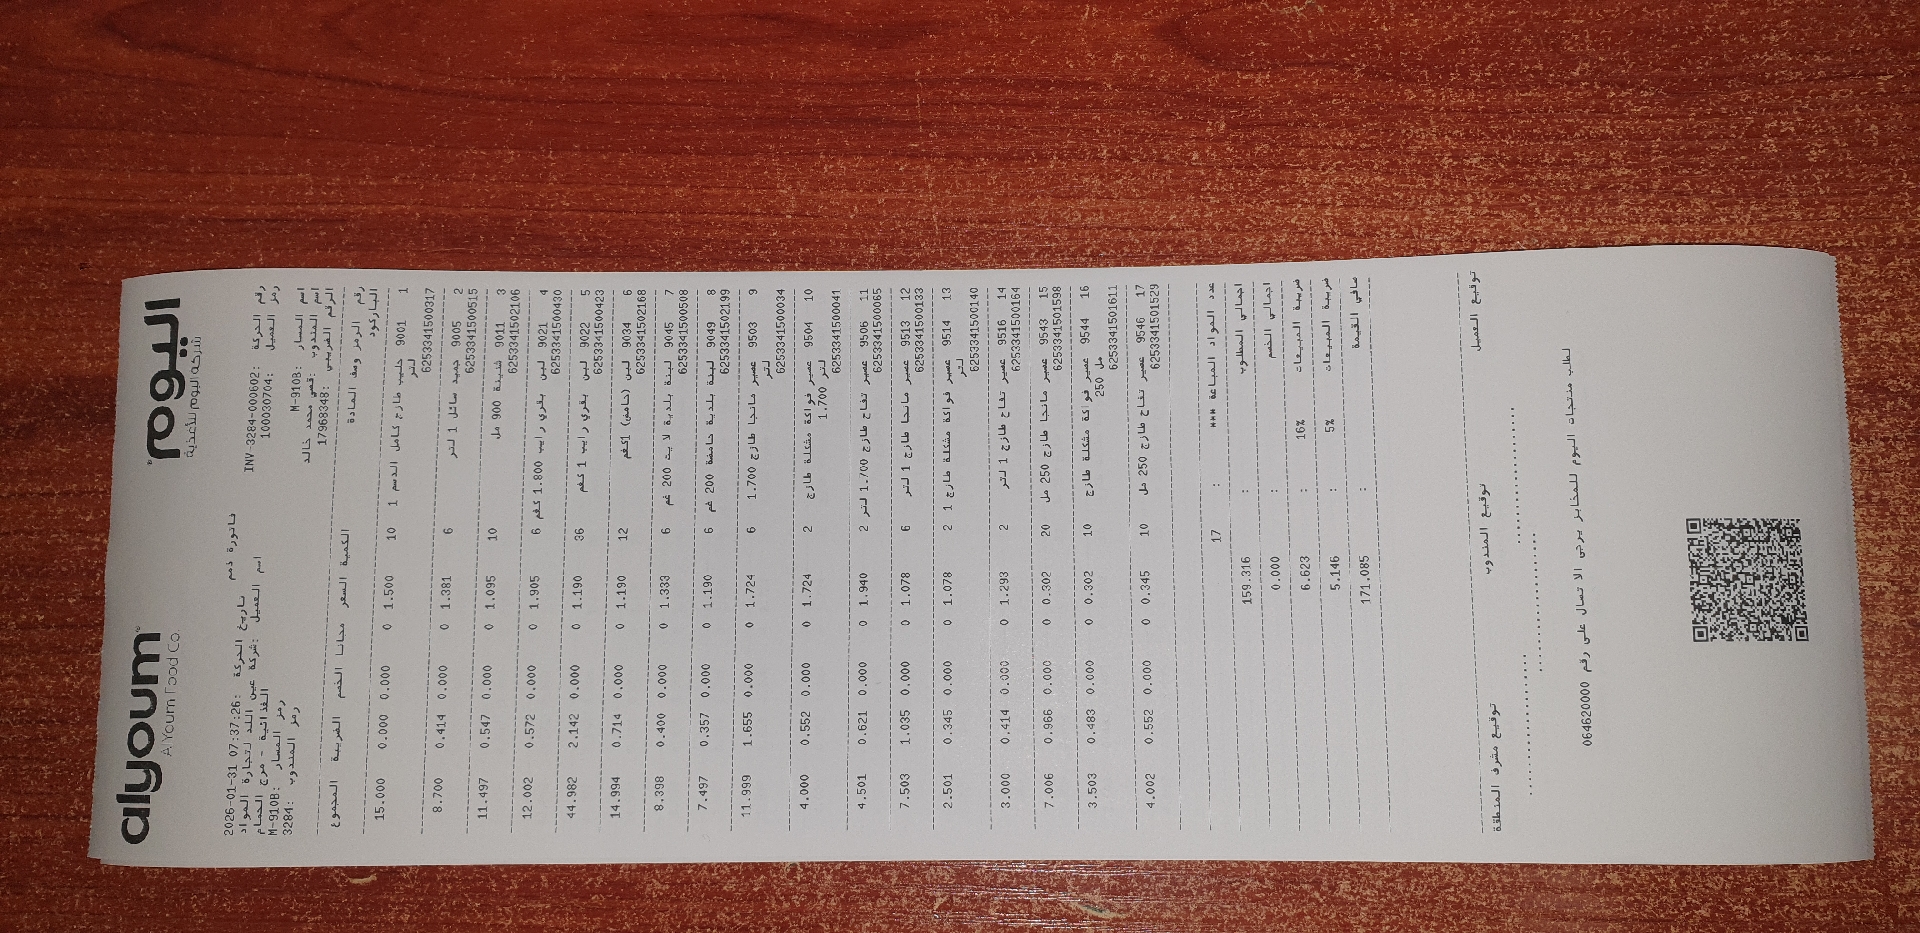 alyoum اليوم
Al Youm Food Co. شركة اليوم للأغذية
فاتورة ذمم
رقم الحركة: INV-3284-000602 تاريخ الحركة: 2026-01-31 07:37:26
رمز العميل: 100030704 اسم العميل: شركة عين اللد لتجارة المواد
الغذائية - مرج الحمام
اسم المسار: M-910B رمز المسار: M-910B
اسم المندوب: قصي محمد خالد رمز المندوب: 3284
الرقم الضريبي: 17968348
رقم الرمز وصف المادة الكمية السعر مجانا الخصم الضريبة المجموع
الباركود
1 9001 حليب طازج كامل الدسم 1 10 1.500 0 0.000 0.000 15.000
لتر
6253341500317
2 9005 جميد سائل 1 لتر 6 1.381 0 0.000 0.414 8.700
6253341500515
3 9011 شنينة 900 مل 10 1.095 0 0.000 0.547 11.497
6253341502106
4 9021 لبن بقري رايب 1.800 كغم 6 1.905 0 0.000 0.572 12.002
6253341500430
5 9022 لبن بقري رايب 1 كغم 36 1.190 0 0.000 2.142 44.982
6253341500423
6 9034 لبن (حامض) 1كغم 12 1.190 0 0.000 0.714 14.994
6253341502168
7 9045 لبنة بلدية لايت 200 غم 6 1.333 0 0.000 0.400 8.398
6253341500508
8 9049 لبنة بلدية حامضة 200 غم 6 1.190 0 0.000 0.357 7.497
6253341502199
9 9503 عصير مانجا طازج 1.700 6 1.724 0 0.000 1.655 11.999
لتر
6253341500034
10 9504 عصير فواكة مشكلة طازج 2 1.724 0 0.000 0.552 4.000
1.700 لتر
6253341500041
11 9506 عصير تفاح طازج 1.700 لتر 2 1.940 0 0.000 0.621 4.501
6253341500065
12 9513 عصير مانجا طازج 1 لتر 6 1.078 0 0.000 1.035 7.503
6253341500133
13 9514 عصير فواكة مشكلة طازج 1 2 1.078 0 0.000 0.345 2.501
لتر
6253341500140
14 9516 عصير تفاح طازج 1 لتر 2 1.293 0 0.000 0.414 3.000
6253341500164
15 9543 عصير مانجا طازج 250 مل 20 0.302 0 0.000 0.966 7.006
6253341501598
16 9544 عصير فواكة مشكلة طازج 10 0.302 0 0.000 0.483 3.503
250 مل
6253341501611
17 9546 عصير تفاح طازج 250 مل 10 0.345 0 0.000 0.552 4.002
6253341501529
عدد المواد المباعة *** : 17
اجمالي المطلوب : 159.316
اجمالي الخصم : 0.000
ضريبة المبيعات 16% : 6.623
ضريبة المبيعات 5% : 5.146
صافي القيمة : 171.085
توقيع العميل توقيع المندوب توقيع مشرف المنطقة
لطلب منتجات اليوم للمخابز يرجى الاتصال على رقم 064620000